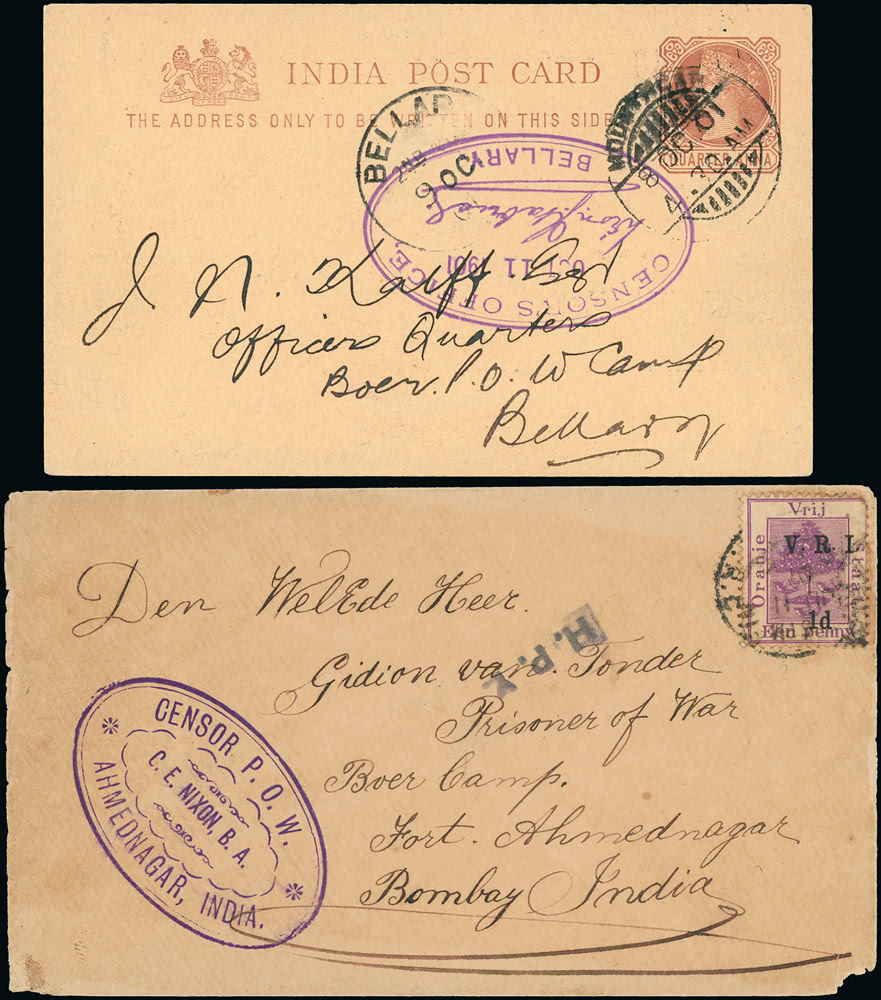 INDIA POST CARD
THE ADDRESS ONLY TO BE WRITTEN ON THIS SIDE
QUARTER ANNA
8 OC 01
4.30 AM
BELLAR
9 OC
BELLARY
OCT 11 1901
CENSORS OFFICE.
J. N. Kalff Esq
Officers Quarters
Boer P.O.W Camp
Bellary
Vrij
Oranje
Staat
V. R. I.
1d
Een Penny
Den WelEde Heer.
H.P.
Gidion van Tonder
Prisoner of War
Boer Camp.
Fort. Ahmednagar
Bombay India
CENSOR. P. O. W.
C. E. NIXON, B. A.
AHMEDNAGAR, INDIA.